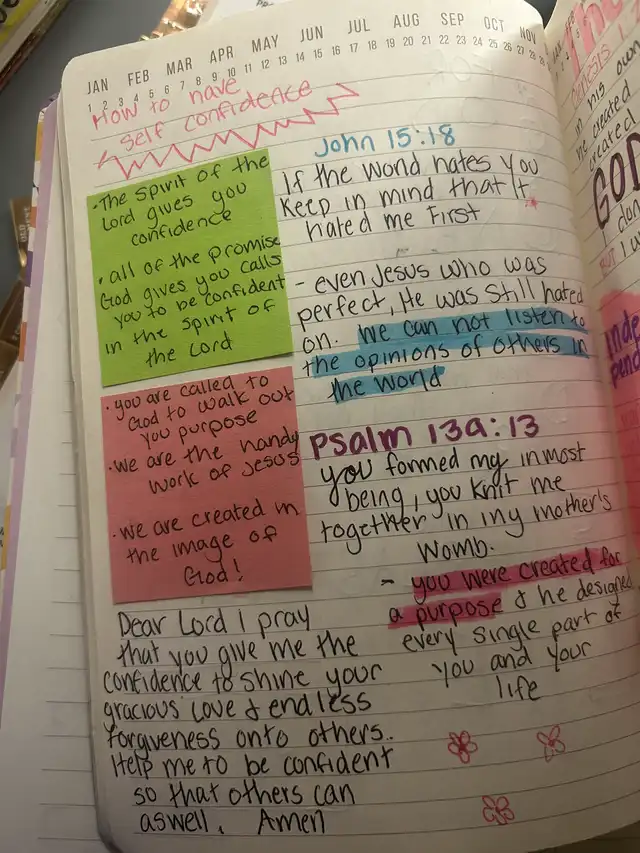 JAN FEB MAR APR MAY JUN JUL AUG SEP OCT NOV
1 2 3 4 5 6 7 8 9 10 11 12 13 14 15 16 17 18 19 20 21 22 23 24 25 26 27 28
How to have
self confidence
• The spirit of the
Lord gives you
confidence
• all of the promise
God gives you calls
you to be confident
in the spirit of
the Lord
• you are called to
God to walk out
you purpose
• we are the handy
work of Jesus
• we are created in
the image of
God!
Dear Lord I pray
that you give me the
confidence to shine your
gracious love & endless
forgiveness onto others.
Help me to be confident
so that others can
aswell. Amen
John 15:18
If the world hates you
keep in mind that it
hated me first
- even Jesus who was
perfect, He was still hated
on. we can not listen to
the opinions of others in
the world
Psalm 139:13
you formed my inmost
being, you knit me
together in my mother's
womb.
- you were created for
a purpose & he designed
every single part of
you and your
life
The
Genesis 1
in his own
he created
created
GOD